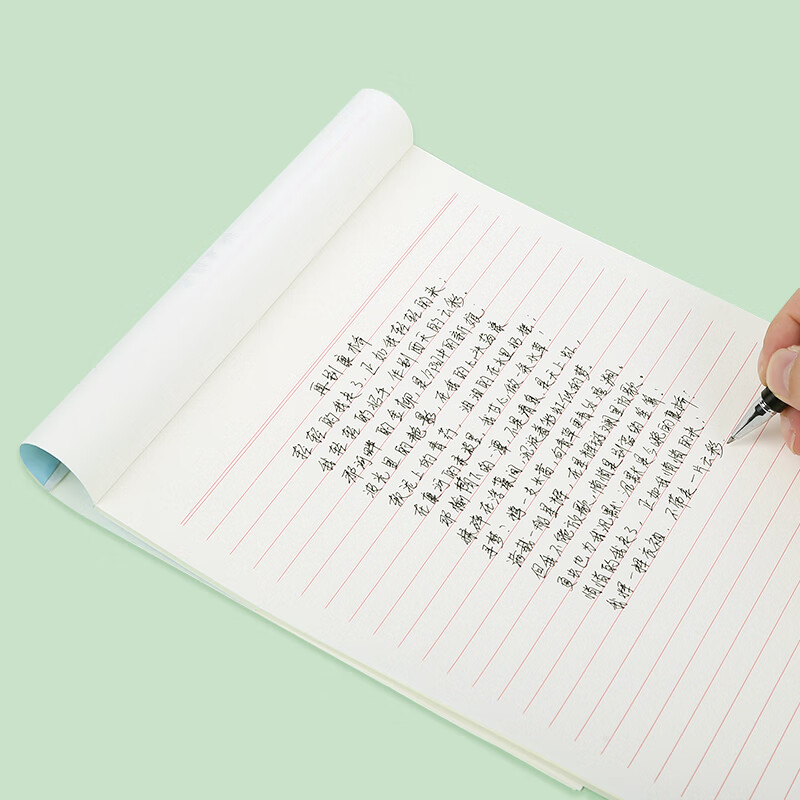 再别康桥
轻轻的我走了,正如我轻轻的来,
我轻轻的招手 作别西天的云彩。
那河畔的金柳 是夕阳中的新娘
波光里的艳影 在我的心头荡漾
软泥上的青荇 油油的在水里招摇;
在康河的柔波里 我甘心做一条水草
那榆荫下的一潭,不是清泉 是天上虹,
揉碎在浮藻间 沉淀着彩虹似的梦
寻梦?撑一支长篙 向青草更青处漫溯
满载一船星辉,在星辉斑斓里放歌。
但我不能放歌,悄悄是别离的笙箫;
夏虫也为我沉默,沉默是今晚的康桥!
悄悄的我走了,正如我悄悄的来
我挥一挥衣袖,不带走一片云彩